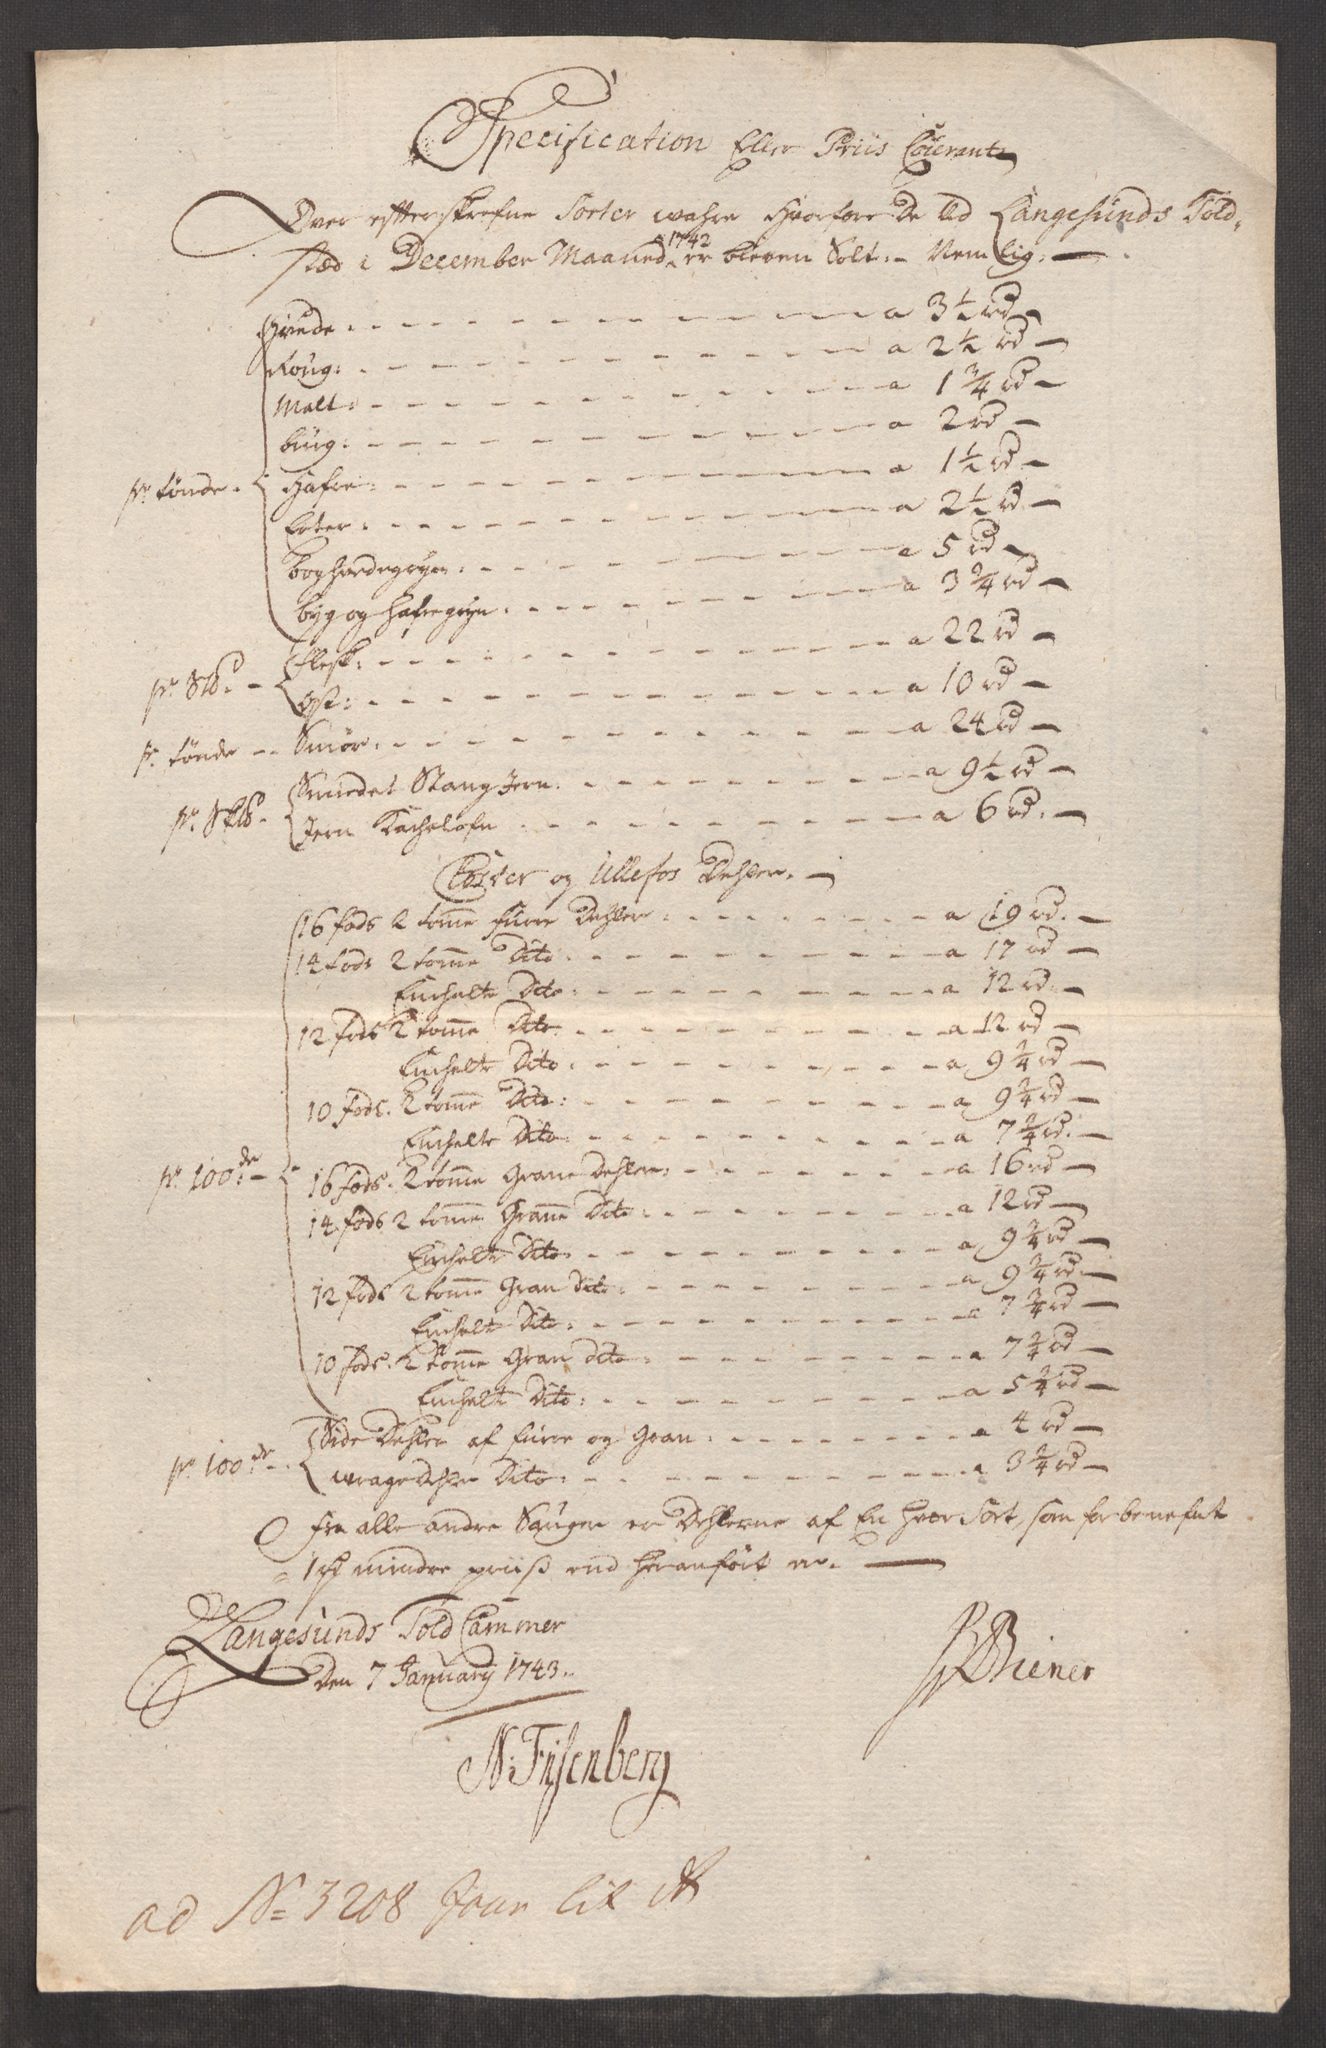 Specification Eller Priis Courant
Over effterskrefne Sorter wahre Hvorfore De Ved Langesunds Told-
stæd i December Maaned 1742 er bleven Solt:- Nemlig:
Hvede. a 3½ rd
Roug: a 2½ rd
Malt: a 1¾ rd
biug: a 2 rd
pr. tønde. Hafre: a 1½ rd
Erter: a 2½ rd
boghvedegryn: a 5 rd
byg og hafregryn: a 3¾ rd
flesk: a 22 rd
pr. Slb. Ost: a 10 rd
pr. tønde Smör: a 24 rd
Smedet Stang Jern. a 9½ rd
pr. Sklb. Jern Kachelofn a 6 rd.
Closter og Ullefos Dehler.
16 fods 2 tomme furre Dehler: a 19 rd.
14 fods 2 tomme Dito: a 17 rd
Enchelte Dito: a 12 rd.
12 fods 2 tomme Dito: a 12 rd
Enchelte Dito: a 9¾ rd
10 fods. 2 tomme Dito: a 9¾ rd
Enchelte Dito: a 7¾ rd.
pr. 100de 16 fods. 2 tomme Grane Dehler: a 16 rd
14 fods 2 tomme Grane Dito: a 12 rd
Enchelte Dito: a 9¾ rd
12 fods 2 tomme Gran Dito: a 9¾ rd.
Enchelte Dito: a 7¾ rd
10 fods. 2 tomme Gran dito: a 7¾ rd
Enchelte Dito: a 5¾ rd
Side Dehler af furre og Gran: a 4 rd
pr. 100de. wragedehler Dito: a 3¾ rd
Fra alle andre Sauger er Dehlerne af En hver Sort, som forbenefnt
1 rd mindre priiß end heranfört er.
Langesunds Told Cammer
Den 7 January 1743.
Wiener
N: Friisenberg
ad No 3208 Jour lit A